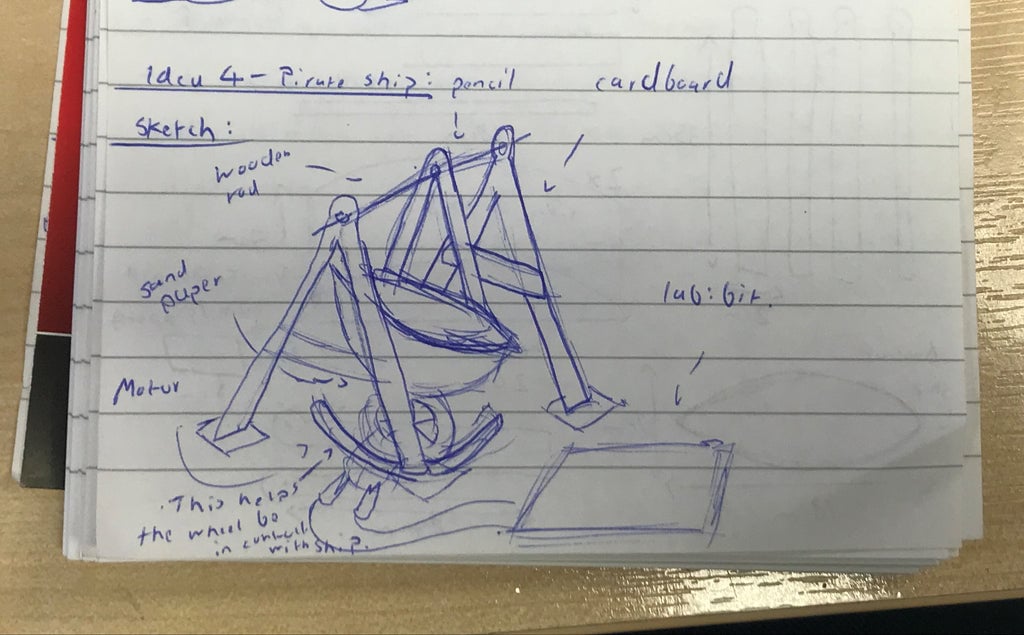 Idea 4 - Pirate ship: pencil cardboard
Sketch:
wooden
rod
sand
paper
lab:bit.
Motor
This helps
the wheel be
in contact
with ship.